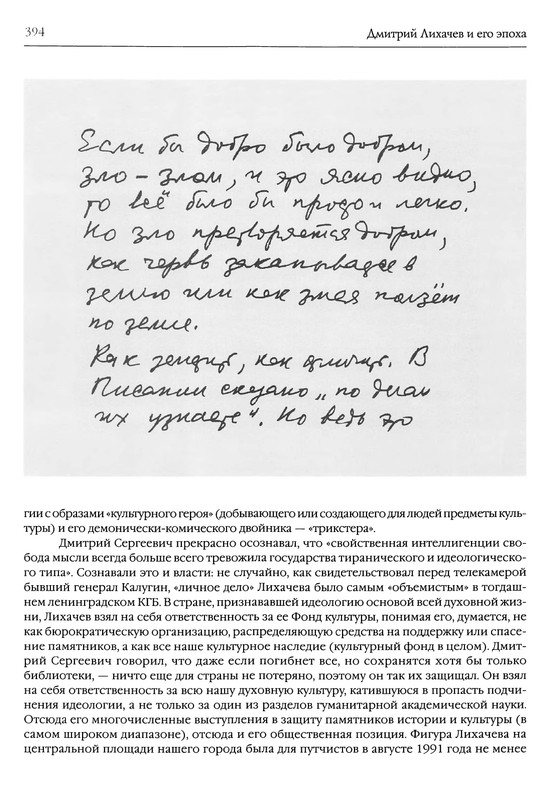 394
Дмитрий Лихачев и его эпоха
Если бы добро было добром,
зло – злом, и это ясно видно,
то всё было бы просто и легко.
Но зло претворяется добром,
как червь закапывается в
землю или как змея ползёт
по земле.
Как увидит, как отличит. В
Писании сказано „по делам
их узнаете“. Но ведь это
гии с образами «культурного героя» (добывающего или создающего для людей предметы куль-
туры) и его демонически-комического двойника — «трикстера».
Дмитрий Сергеевич прекрасно осознавал, что «свойственная интеллигенции сво-
бода мысли всегда больше всего тревожила государства тиранического и идеологическо-
го типа». Сознавали это и власти: не случайно, как свидетельствовал перед телекамерой
бывший генерал Калугин, «личное дело» Лихачева было самым «объемистым» в тогдаш-
нем ленинградском КГБ. В стране, признававшей идеологию основой всей духовной жиз-
ни, Лихачев взял на себя ответственность за ее Фонд культуры, понимая его, думается, не
как бюрократическую организацию, распределяющую средства на поддержку или спасе-
ние памятников, а как все наше культурное наследие (культурный фонд в целом). Дмит-
рий Сергеевич говорил, что даже если погибнет все, но сохранятся хотя бы только
библиотеки, — ничто еще для страны не потеряно, поэтому он так их защищал. Он взял
на себя ответственность за всю нашу духовную культуру, катившуюся в пропасть подчи-
нения идеологии, а не только за один из разделов гуманитарной академической науки.
Отсюда его многочисленные выступления в защиту памятников истории и культуры (в
самом широком диапазоне), отсюда и его общественная позиция. Фигура Лихачева на
центральной площади нашего города была для путчистов в августе 1991 года не менее